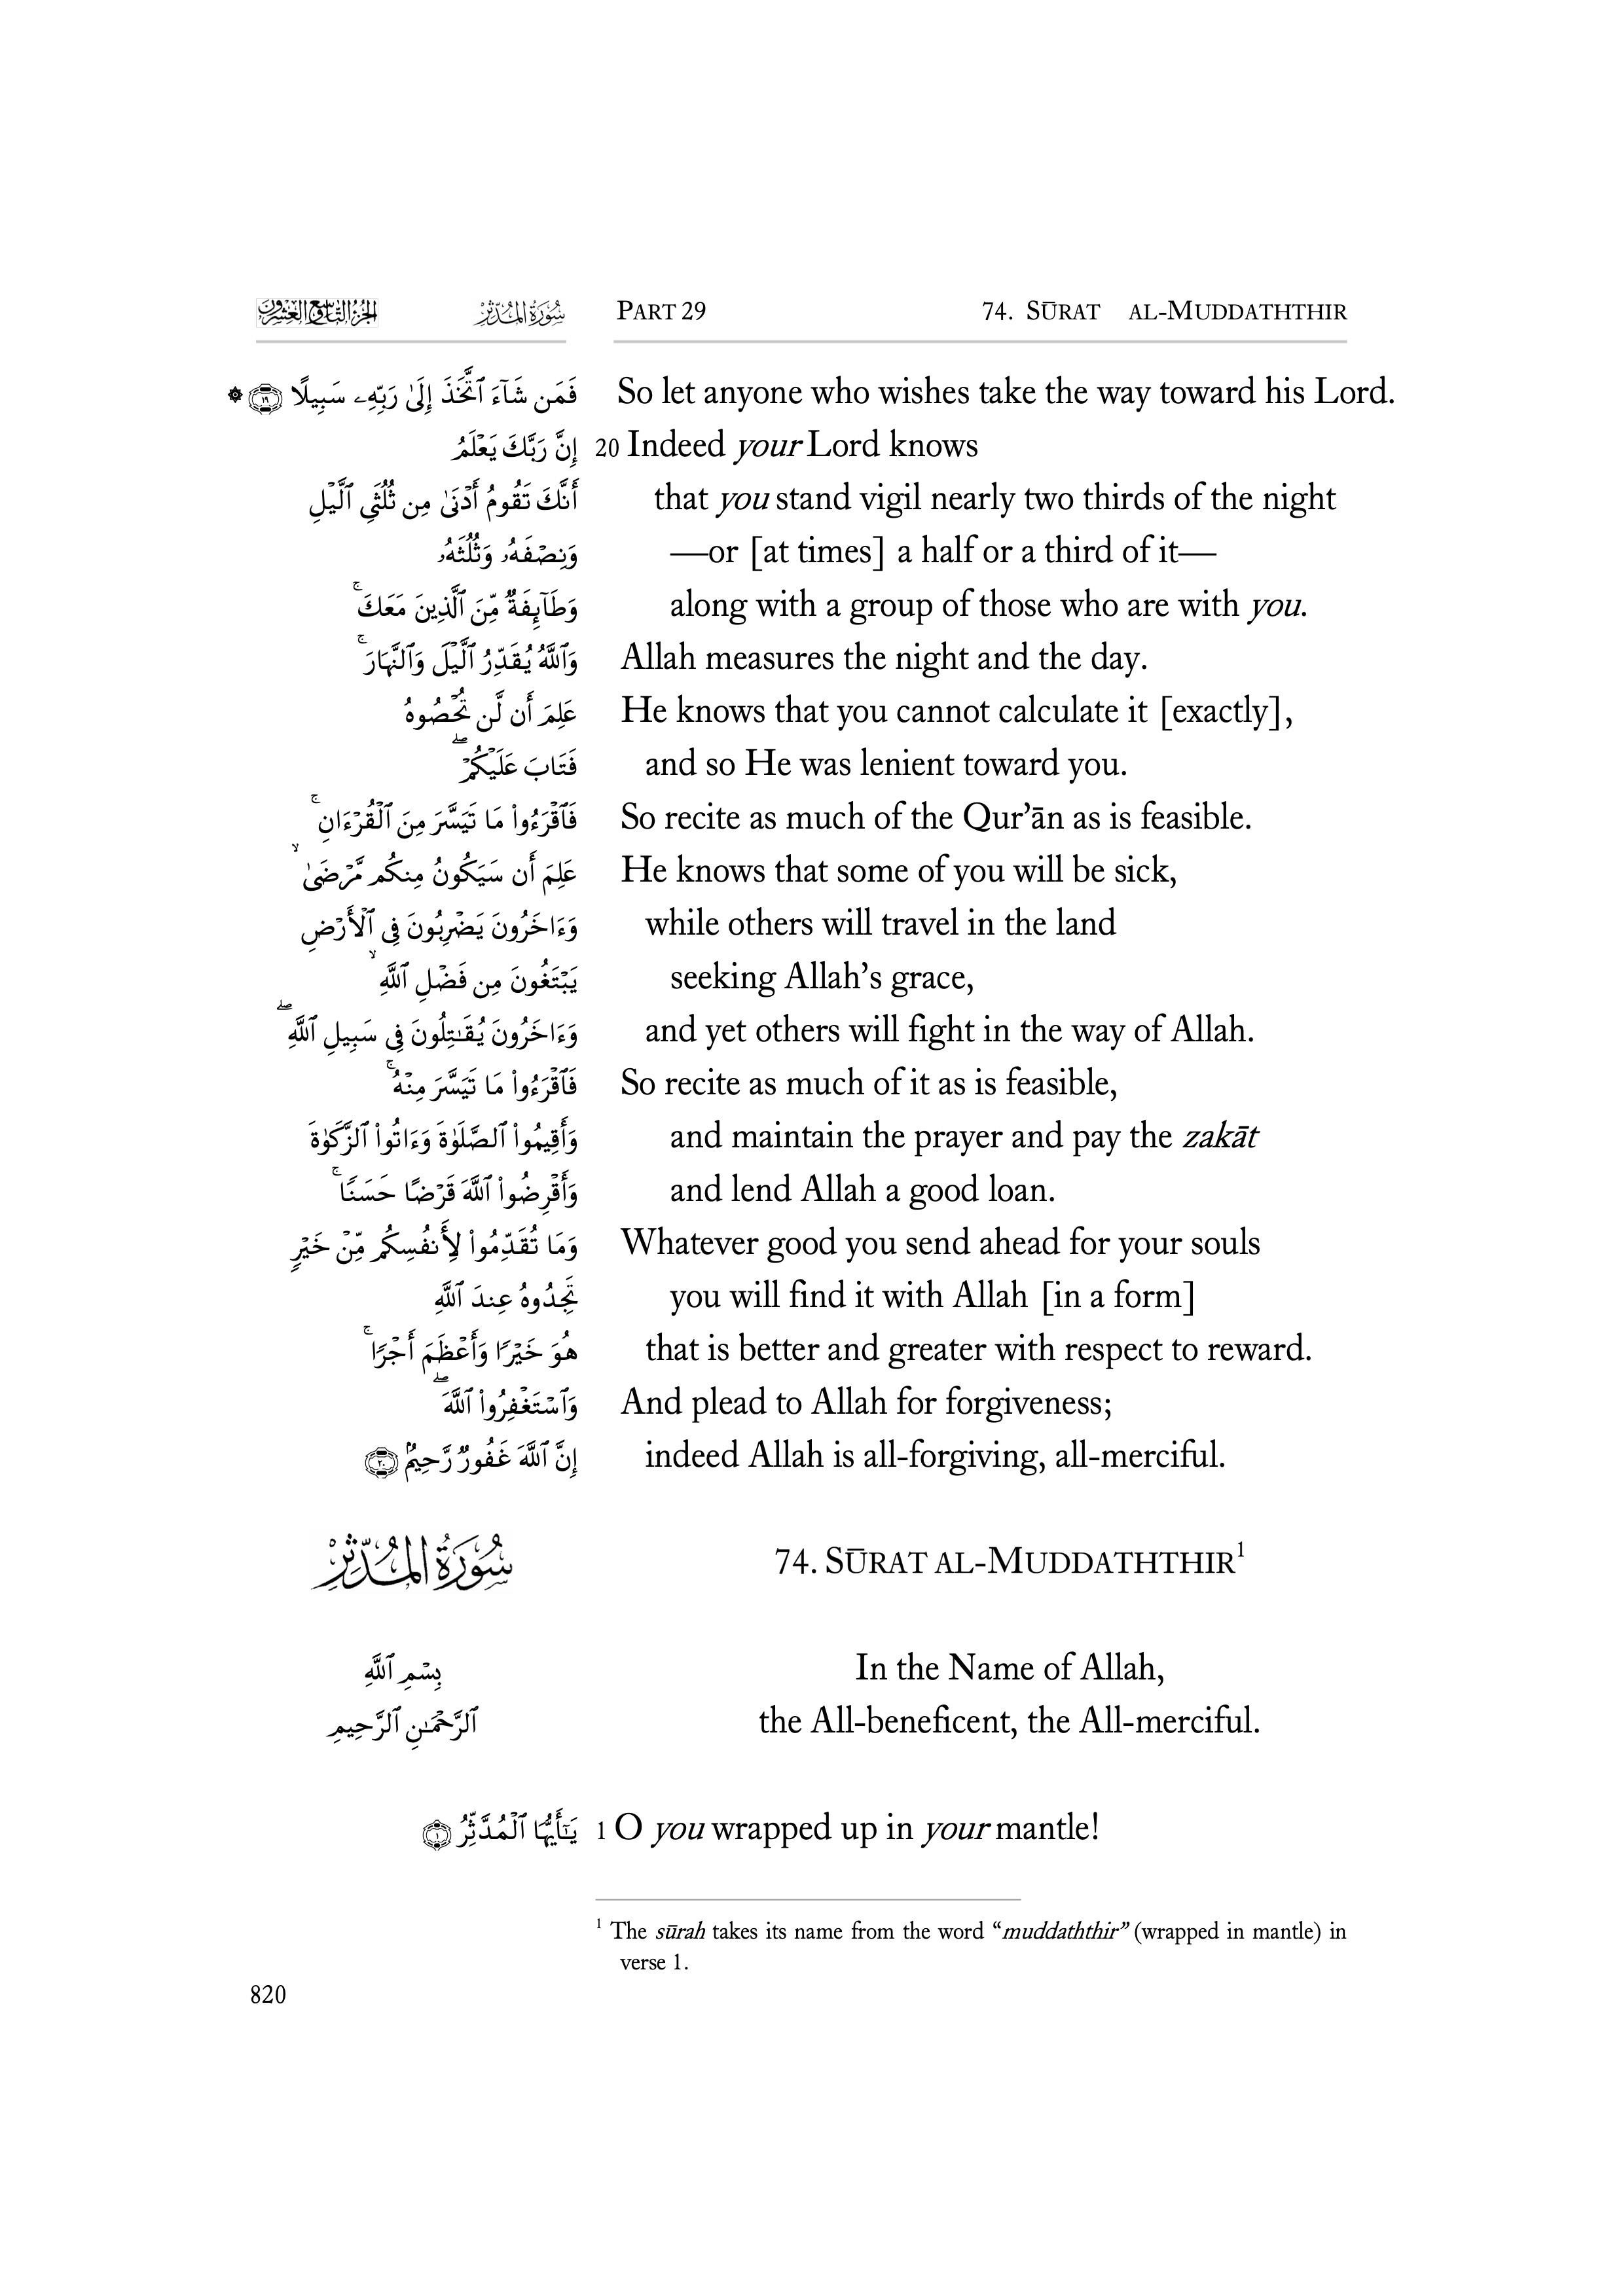 الجزء التاسع والعشرون سُورَةُ المُدَّثِّر PART 29 74. SŪRAT AL-MUDDATHTHIR
فَمَن شَآءَ ٱتَّخَذَ إِلَىٰ رَبِّهِۦ سَبِيلًا ١٩ ۞ So let anyone who wishes take the way toward his Lord.
إِنَّ رَبَّكَ يَعْلَمُ 20 Indeed your Lord knows
أَنَّكَ تَقُومُ أَدْنَىٰ مِن ثُلُثَىِ ٱلَّيْلِ that you stand vigil nearly two thirds of the night
وَنِصْفَهُۥ وَثُلُثَهُۥ —or [at times] a half or a third of it—
وَطَآئِفَةٌ مِّنَ ٱلَّذِينَ مَعَكَ ۚ along with a group of those who are with you.
وَٱللَّهُ يُقَدِّرُ ٱلَّيْلَ وَٱلنَّهَارَ ۚ Allah measures the night and the day.
عَلِمَ أَن لَّن تُحْصُوهُ He knows that you cannot calculate it [exactly],
فَتَابَ عَلَيْكُمْ ۖ and so He was lenient toward you.
فَٱقْرَءُوا۟ مَا تَيَسَّرَ مِنَ ٱلْقُرْءَانِ ۚ So recite as much of the Qur’ān as is feasible.
عَلِمَ أَن سَيَكُونُ مِنكُم مَّرْضَىٰ ۙ He knows that some of you will be sick,
وَءَاخَرُونَ يَضْرِبُونَ فِى ٱلْأَرْضِ while others will travel in the land
يَبْتَغُونَ مِن فَضْلِ ٱللَّهِ ۙ seeking Allah’s grace,
وَءَاخَرُونَ يُقَٰتِلُونَ فِى سَبِيلِ ٱللَّهِ ۖ and yet others will fight in the way of Allah.
فَٱقْرَءُوا۟ مَا تَيَسَّرَ مِنْهُ ۚ So recite as much of it as is feasible,
وَأَقِيمُوا۟ ٱلصَّلَوٰةَ وَءَاتُوا۟ ٱلزَّكَوٰةَ and maintain the prayer and pay the zakāt
وَأَقْرِضُوا۟ ٱللَّهَ قَرْضًا حَسَنًا ۚ and lend Allah a good loan.
وَمَا تُقَدِّمُوا۟ لِأَنفُسِكُم مِّنْ خَيْرٍ Whatever good you send ahead for your souls
تَجِدُوهُ عِندَ ٱللَّهِ you will find it with Allah [in a form]
هُوَ خَيْرًا وَأَعْظَمَ أَجْرًا ۚ that is better and greater with respect to reward.
وَٱسْتَغْفِرُوا۟ ٱللَّهَ ۖ And plead to Allah for forgiveness;
إِنَّ ٱللَّهَ غَفُورٌ رَّحِيمٌ ٢٠ indeed Allah is all-forgiving, all-merciful.
سُورَةُ المُدَّثِّر 74. SŪRAT AL-MUDDATHTHIR1
بِسْمِ ٱللَّهِ In the Name of Allah,
ٱلرَّحْمَٰنِ ٱلرَّحِيمِ the All-beneficent, the All-merciful.
يَٰٓأَيُّهَا ٱلْمُدَّثِّرُ ١ 1 O you wrapped up in your mantle!
1 The sūrah takes its name from the word “muddaththir” (wrapped in mantle) in
verse 1.
820